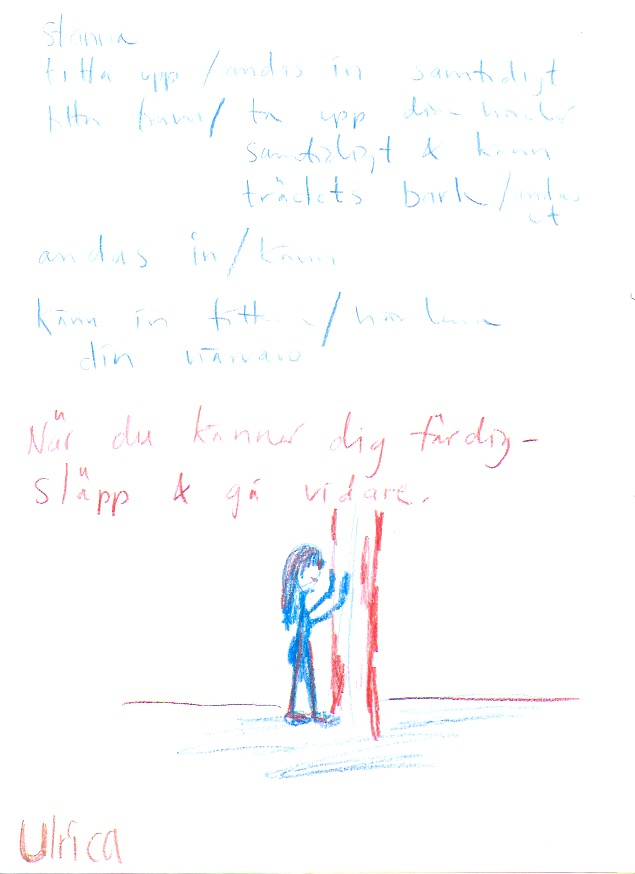 stanna
titta upp / andas in samtidigt
titta fram / ta upp din hand
samtidigt & känn
trädets bark / andas
ut
andas in / känn
känn in
din närvaro
När du känner dig färdig -
släpp & gå vidare.
Ulrica